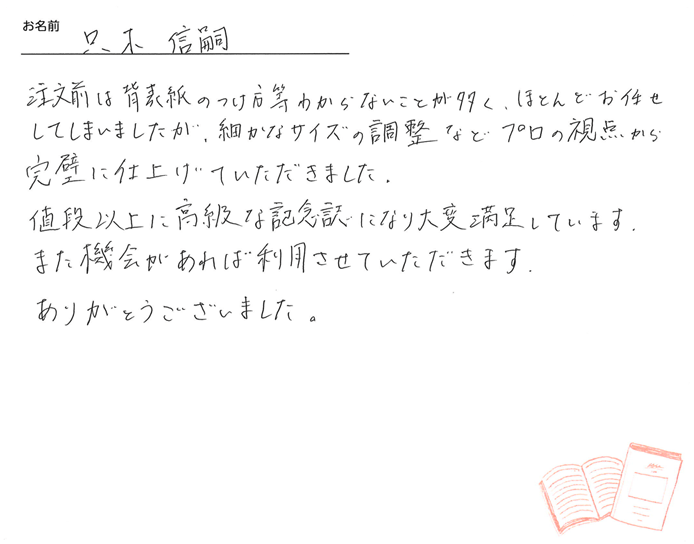 お名前 只木 信嗣
注文前は背表紙のつけ方等わからないことが多く、ほとんどお任せ
してしまいましたが、細かなサイズの調整などプロの視点から
完璧に仕上げていただきました。
値段以上に高級な記念誌になり大変満足しています。
また機会があれば利用させていただきます。
ありがとうございました。